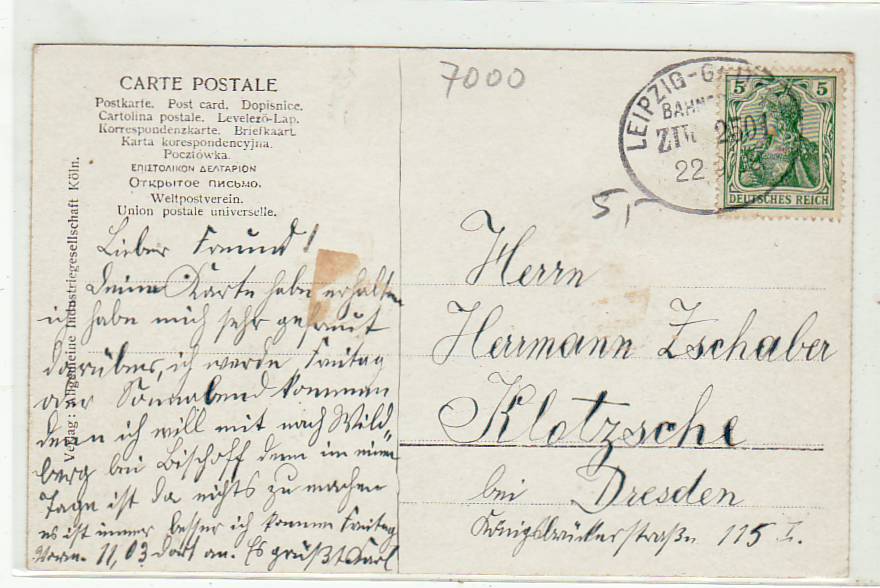 CARTE POSTALE
Postkarte. Post card. Dopisnice.
Cartolina postale. Levelező-Lap.
Korrespondenzkarte. Briefkaart.
Karta korespondencyjna.
Pocztówka.
ΕΠΙΣΤΟΛΙΚΟΝ ΔΕΛΤΑΡΙΟΝ
Открытое письмо.
Weltpostverein.
Union postale universelle.
Verlag: Allgemeine Industriegesellschaft Köln.
Lieber Freund!
Deine Karte habe erhalten
ich habe mich sehr gefreut
darüber, ich werde Freitag
oder Sonnabend kommen
denn ich will mit nach Wild„
berg bei Bischoff denn im
Tage ist da nichts zu machen
es ist immer besser ich komme Freitag
Vorm. 11,03 dort an. Es grüßt Karl
7000
LEIPZIG-
BAHNP
ZUG 2501
22
5 5
DEUTSCHES REICH
5,-
Herrn
Herrmann Zschaber
Klotzsche
bei Dresden
Königsbrückerstraße 115 I.